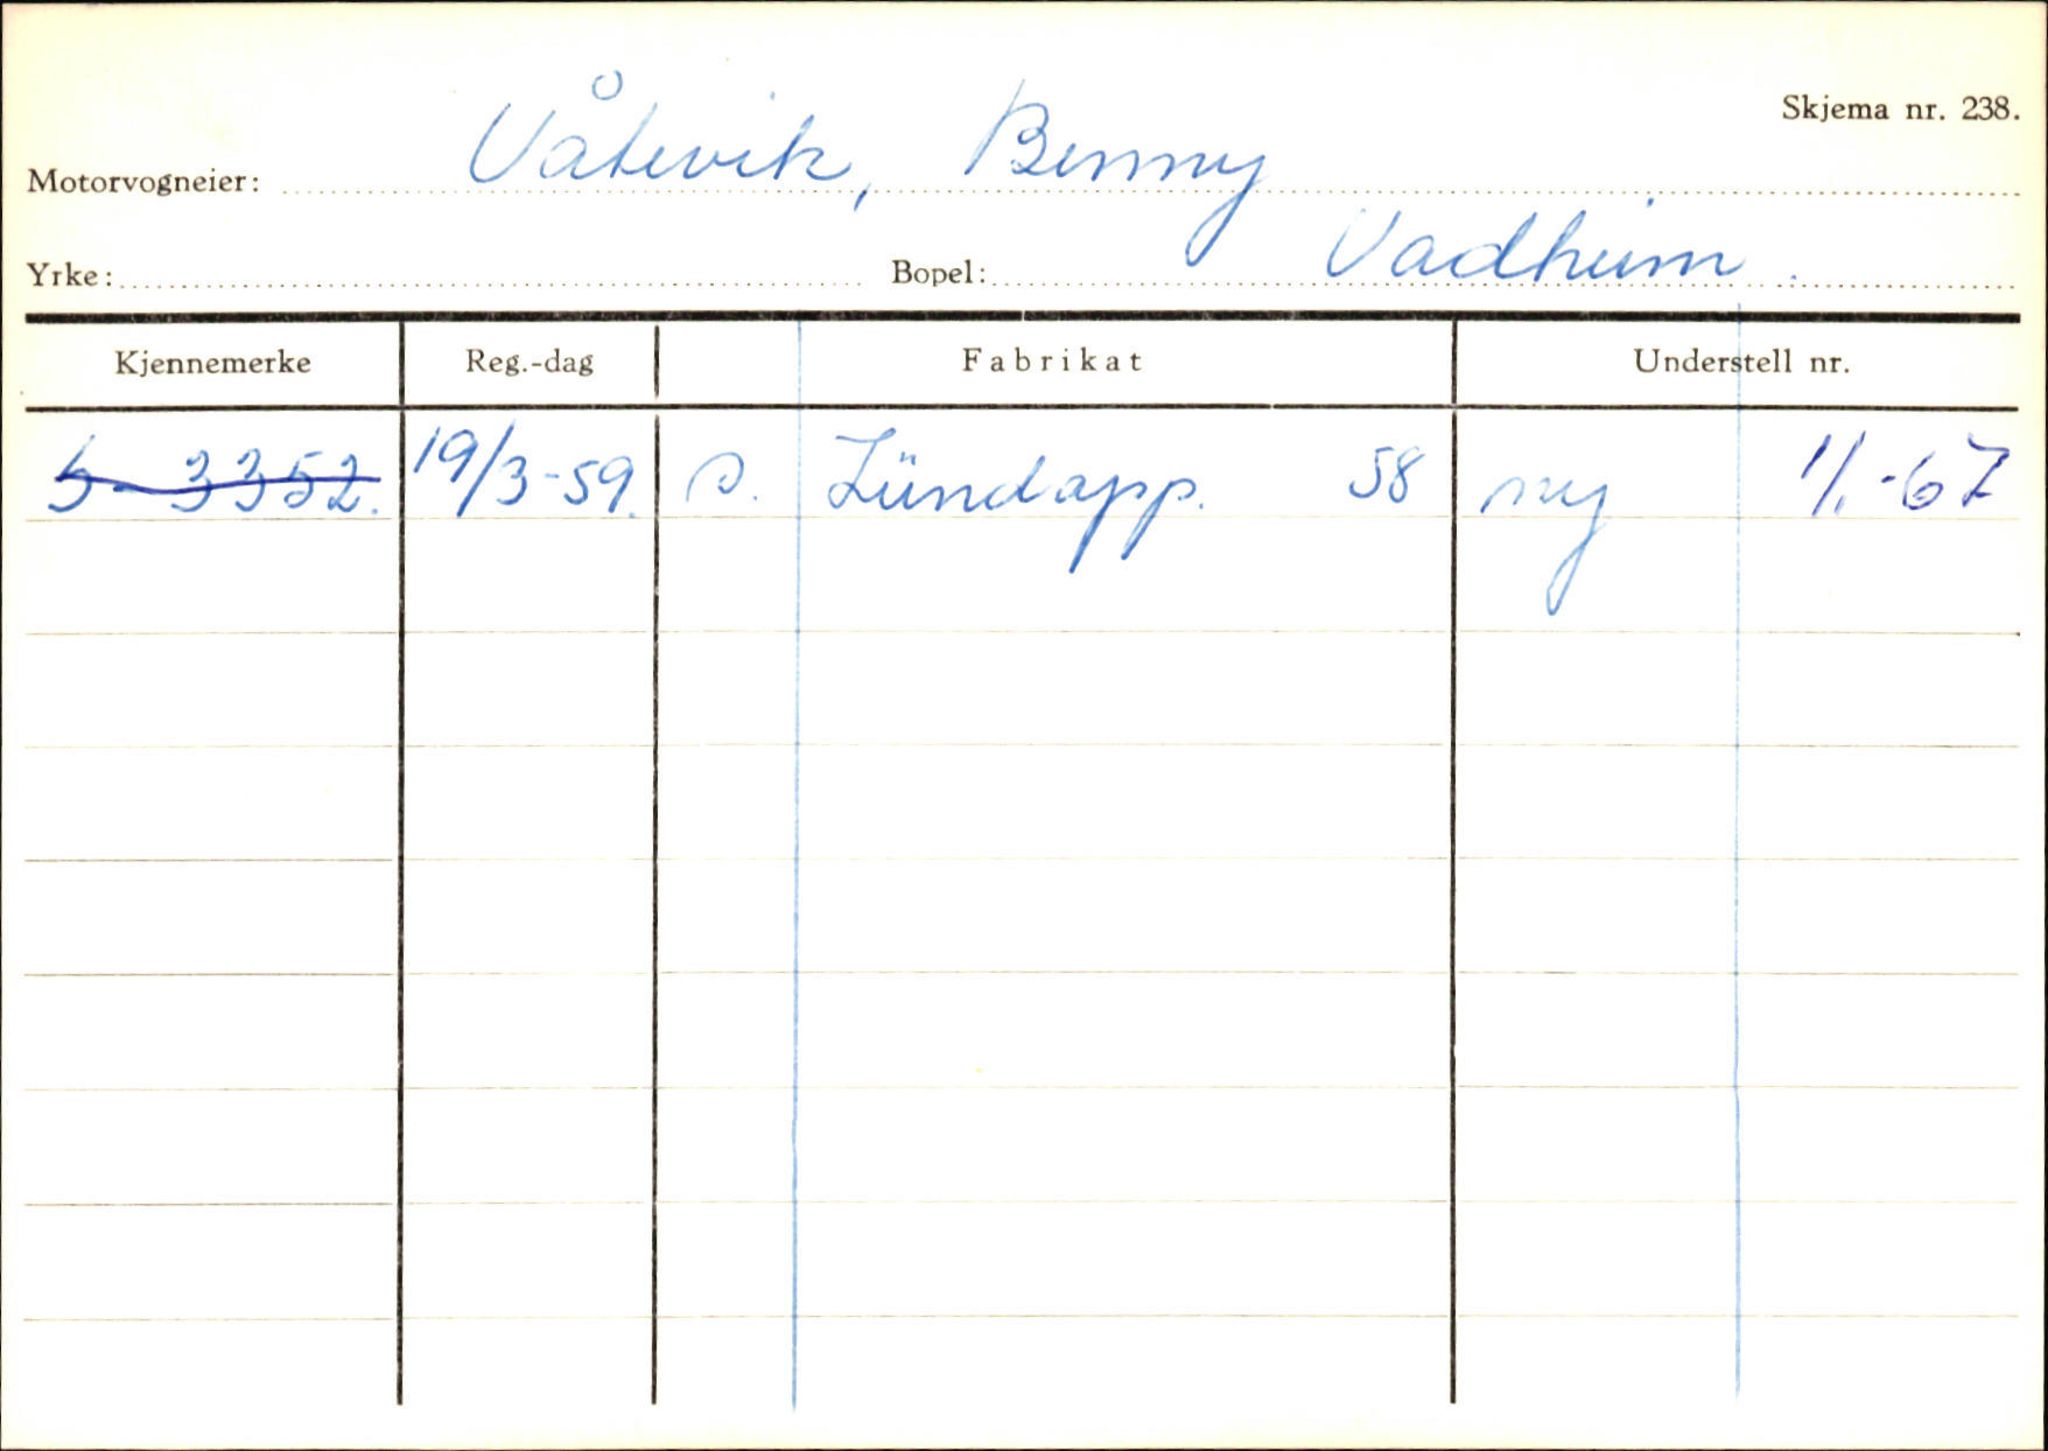 Skjema nr. 238.
Motorvogneier: Våtevik, Benny
Yrke: Bopel: Vadheim.
Kjennemerke Reg.-dag Fabrikat Understell nr.
S-3352. 19/3-59. s. Zündapp. 58 ny 1/1.-67